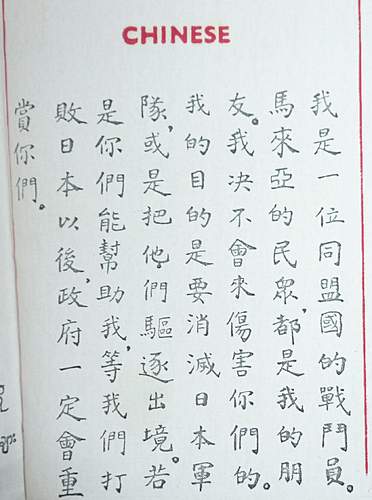 CHINESE
我是一位同盟國的戰鬥員。
馬來亞的民眾，都是我的朋
友。我決不會來傷害你們的。
我的目的是要消滅日本軍
隊，或是把他們驅逐出境。若
是你們能幫助我，等我們打
敗日本以後，政府一定會重
賞你們。